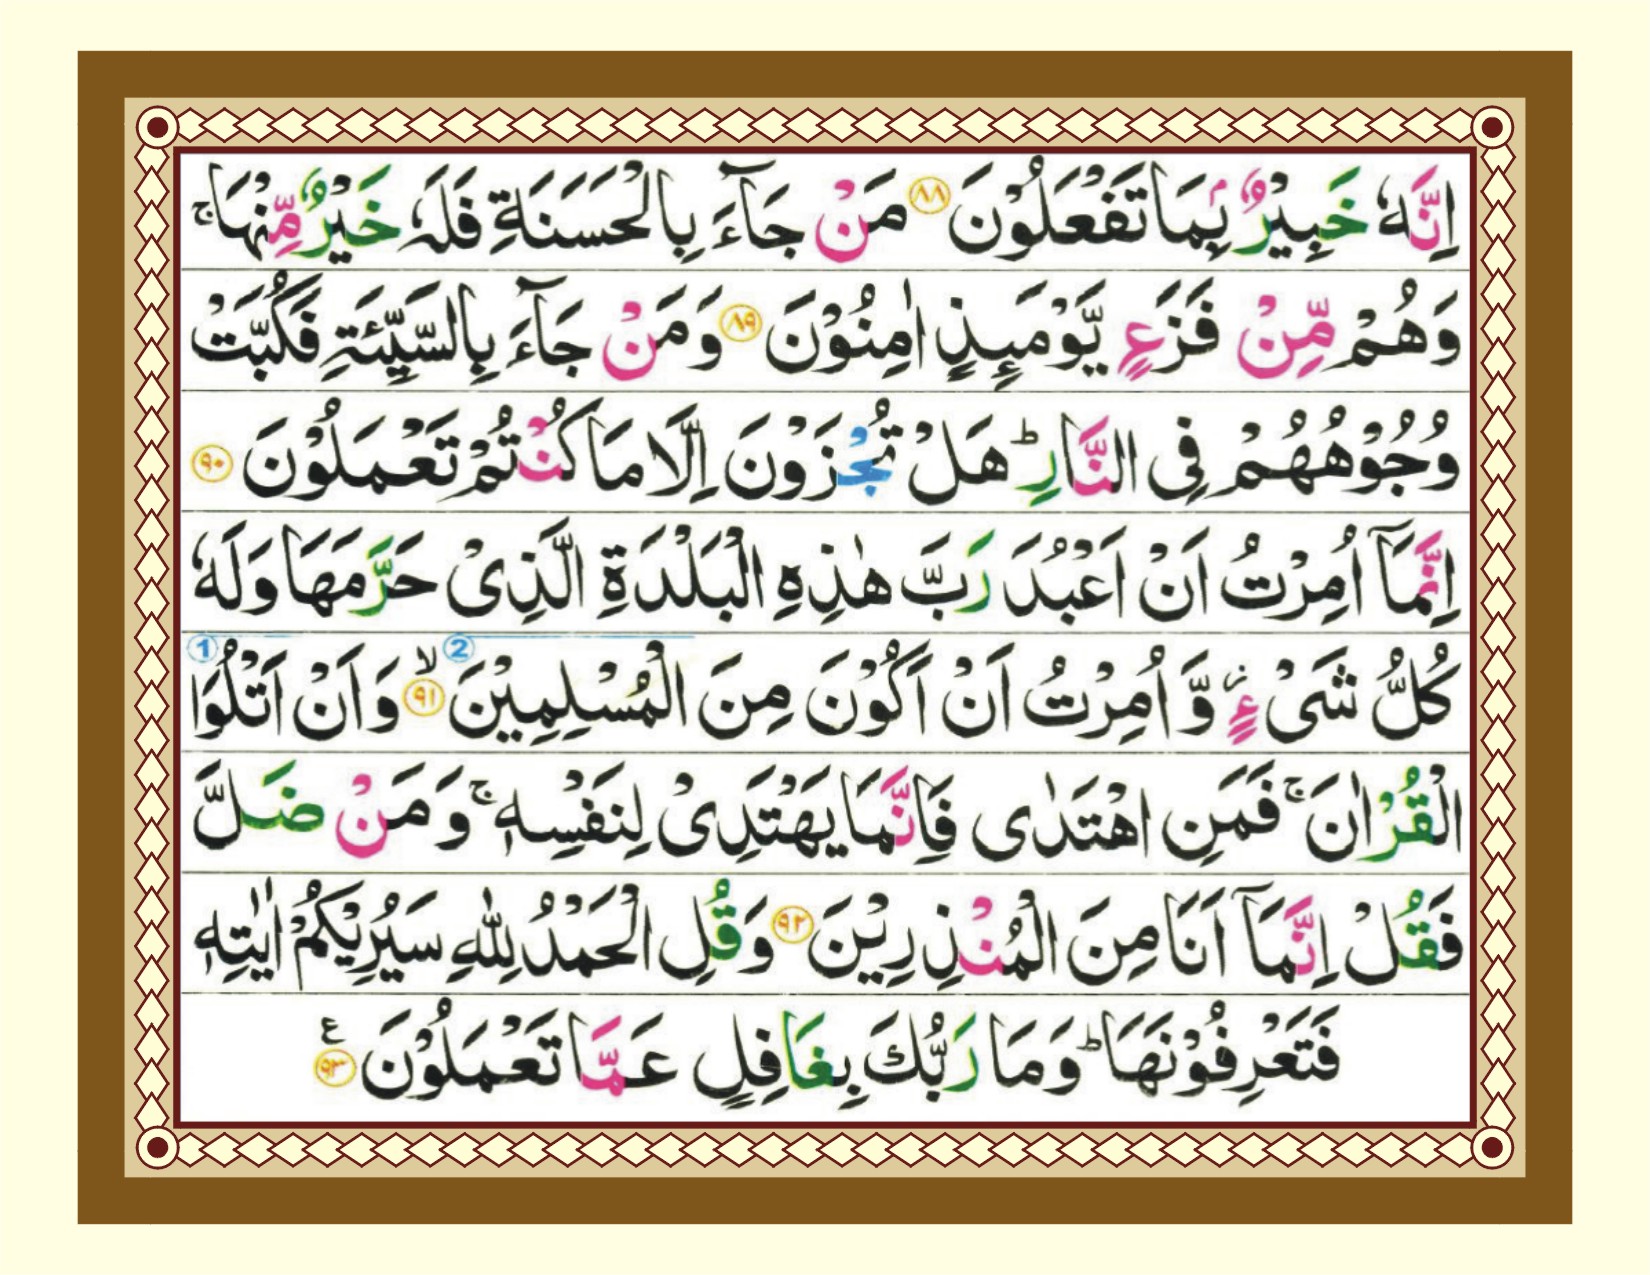 اِنَّهٗ خَبِيْرٌۢ بِمَا تَفْعَلُوْنَ ﴿۸۸﴾ مَنْ جَآءَ بِالْحَسَنَةِ فَلَهٗ خَيْرٌ مِّنْهَا ۚ
وَهُمْ مِّنْ فَزَعٍ يَّوْمَىِٕذٍ اٰمِنُوْنَ ﴿۸۹﴾ وَمَنْ جَآءَ بِالسَّيِّئَةِ فَكُبَّتْ
وُجُوْهُهُمْ فِى النَّارِ ؕ هَلْ تُجْزَوْنَ اِلَّا مَا كُنْتُمْ تَعْمَلُوْنَ ﴿۹۰﴾
اِنَّمَآ اُمِرْتُ اَنْ اَعْبُدَ رَبَّ هٰذِهِ الْبَلْدَةِ الَّذِىْ حَرَّمَهَا وَلَهٗ
1 2
كُلُّ شَىْءٍ ؗ وَّاُمِرْتُ اَنْ اَكُوْنَ مِنَ الْمُسْلِمِيْنَ ۙ﴿۹۱﴾ وَاَنْ اَتْلُوَا
الْقُرْاٰنَ ۚ فَمَنِ اهْتَدٰى فَاِنَّمَا يَهْتَدِىْ لِنَفْسِهٖ ۚ وَمَنْ ضَلَّ
فَقُلْ اِنَّمَآ اَنَا مِنَ الْمُنْذِرِيْنَ ﴿۹۲﴾ وَقُلِ الْحَمْدُ لِلّٰهِ سَيُرِيْكُمْ اٰيٰتِهٖ
فَتَعْرِفُوْنَهَا ؕ وَمَا رَبُّكَ بِغَافِلٍ عَمَّا تَعْمَلُوْنَ ﴿۹۳﴾ ع